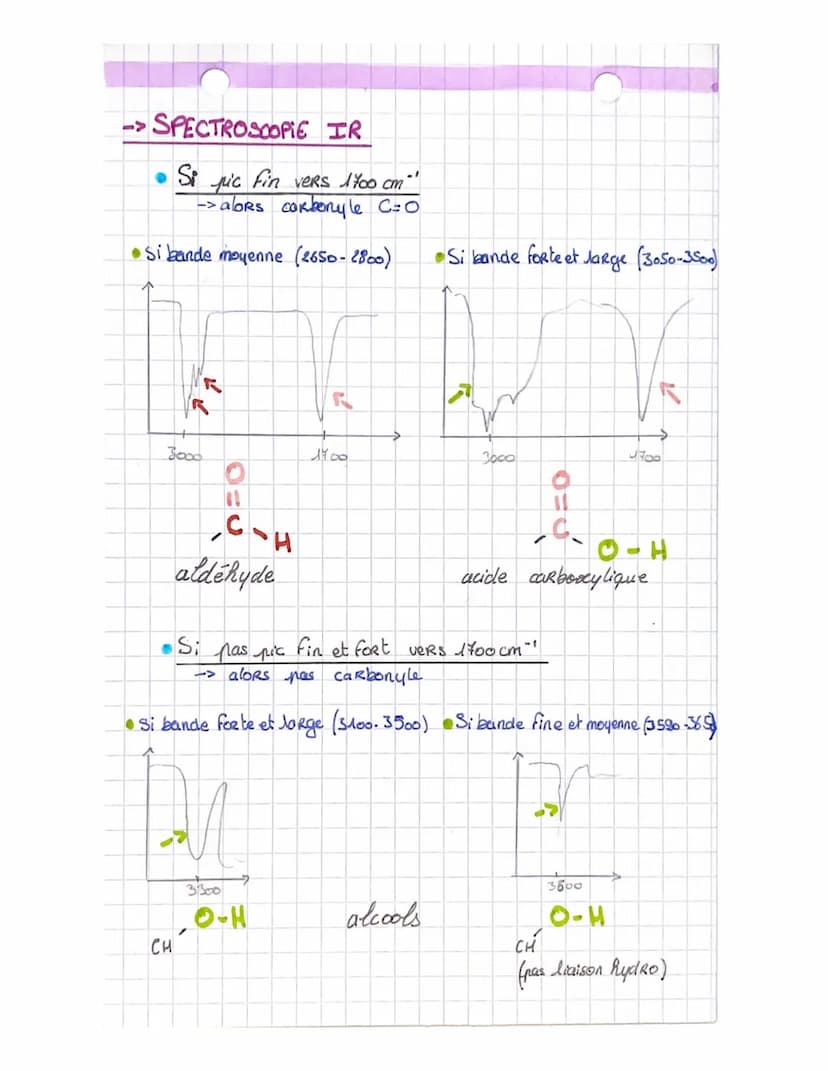 -> SPECTROSCOPIE IR
• Si pic fin vers 1700 cm⁻¹
-> alors carbonyle C=O
• Si bande moyenne (2650-2800)
• Si bande forte et large (3050-3500)
3000 1700
3000 1700
O
C - H
aldéhyde
O
C
O - H
acide carboxylique
• Si pas pic fin et fort vers 1700 cm⁻¹
-> alors pas carbonyle
• Si bande forte et large (3100-3500)
• Si bande fine et moyenne (3590-365
3300
3600
O-H
CH
alcools
O-H
CH
(pas liaison hydro)